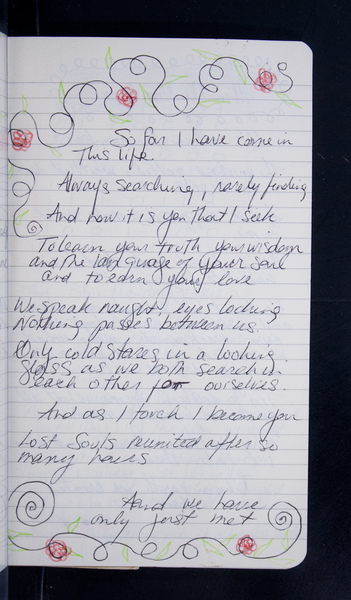 So far I have come in
This life.
Always searching, rarely finding
And now it is you That I seek
To learn your truth your wisdom
and the language of your soul
and to earn your love
We speak naught, eyes locking
Nothing passes between us.
Only cold stares in a looking
glass as we both search in
each other for ourselves.
And as I touch I become you
Lost Souls reunited after so
many hours
And we have
only just met